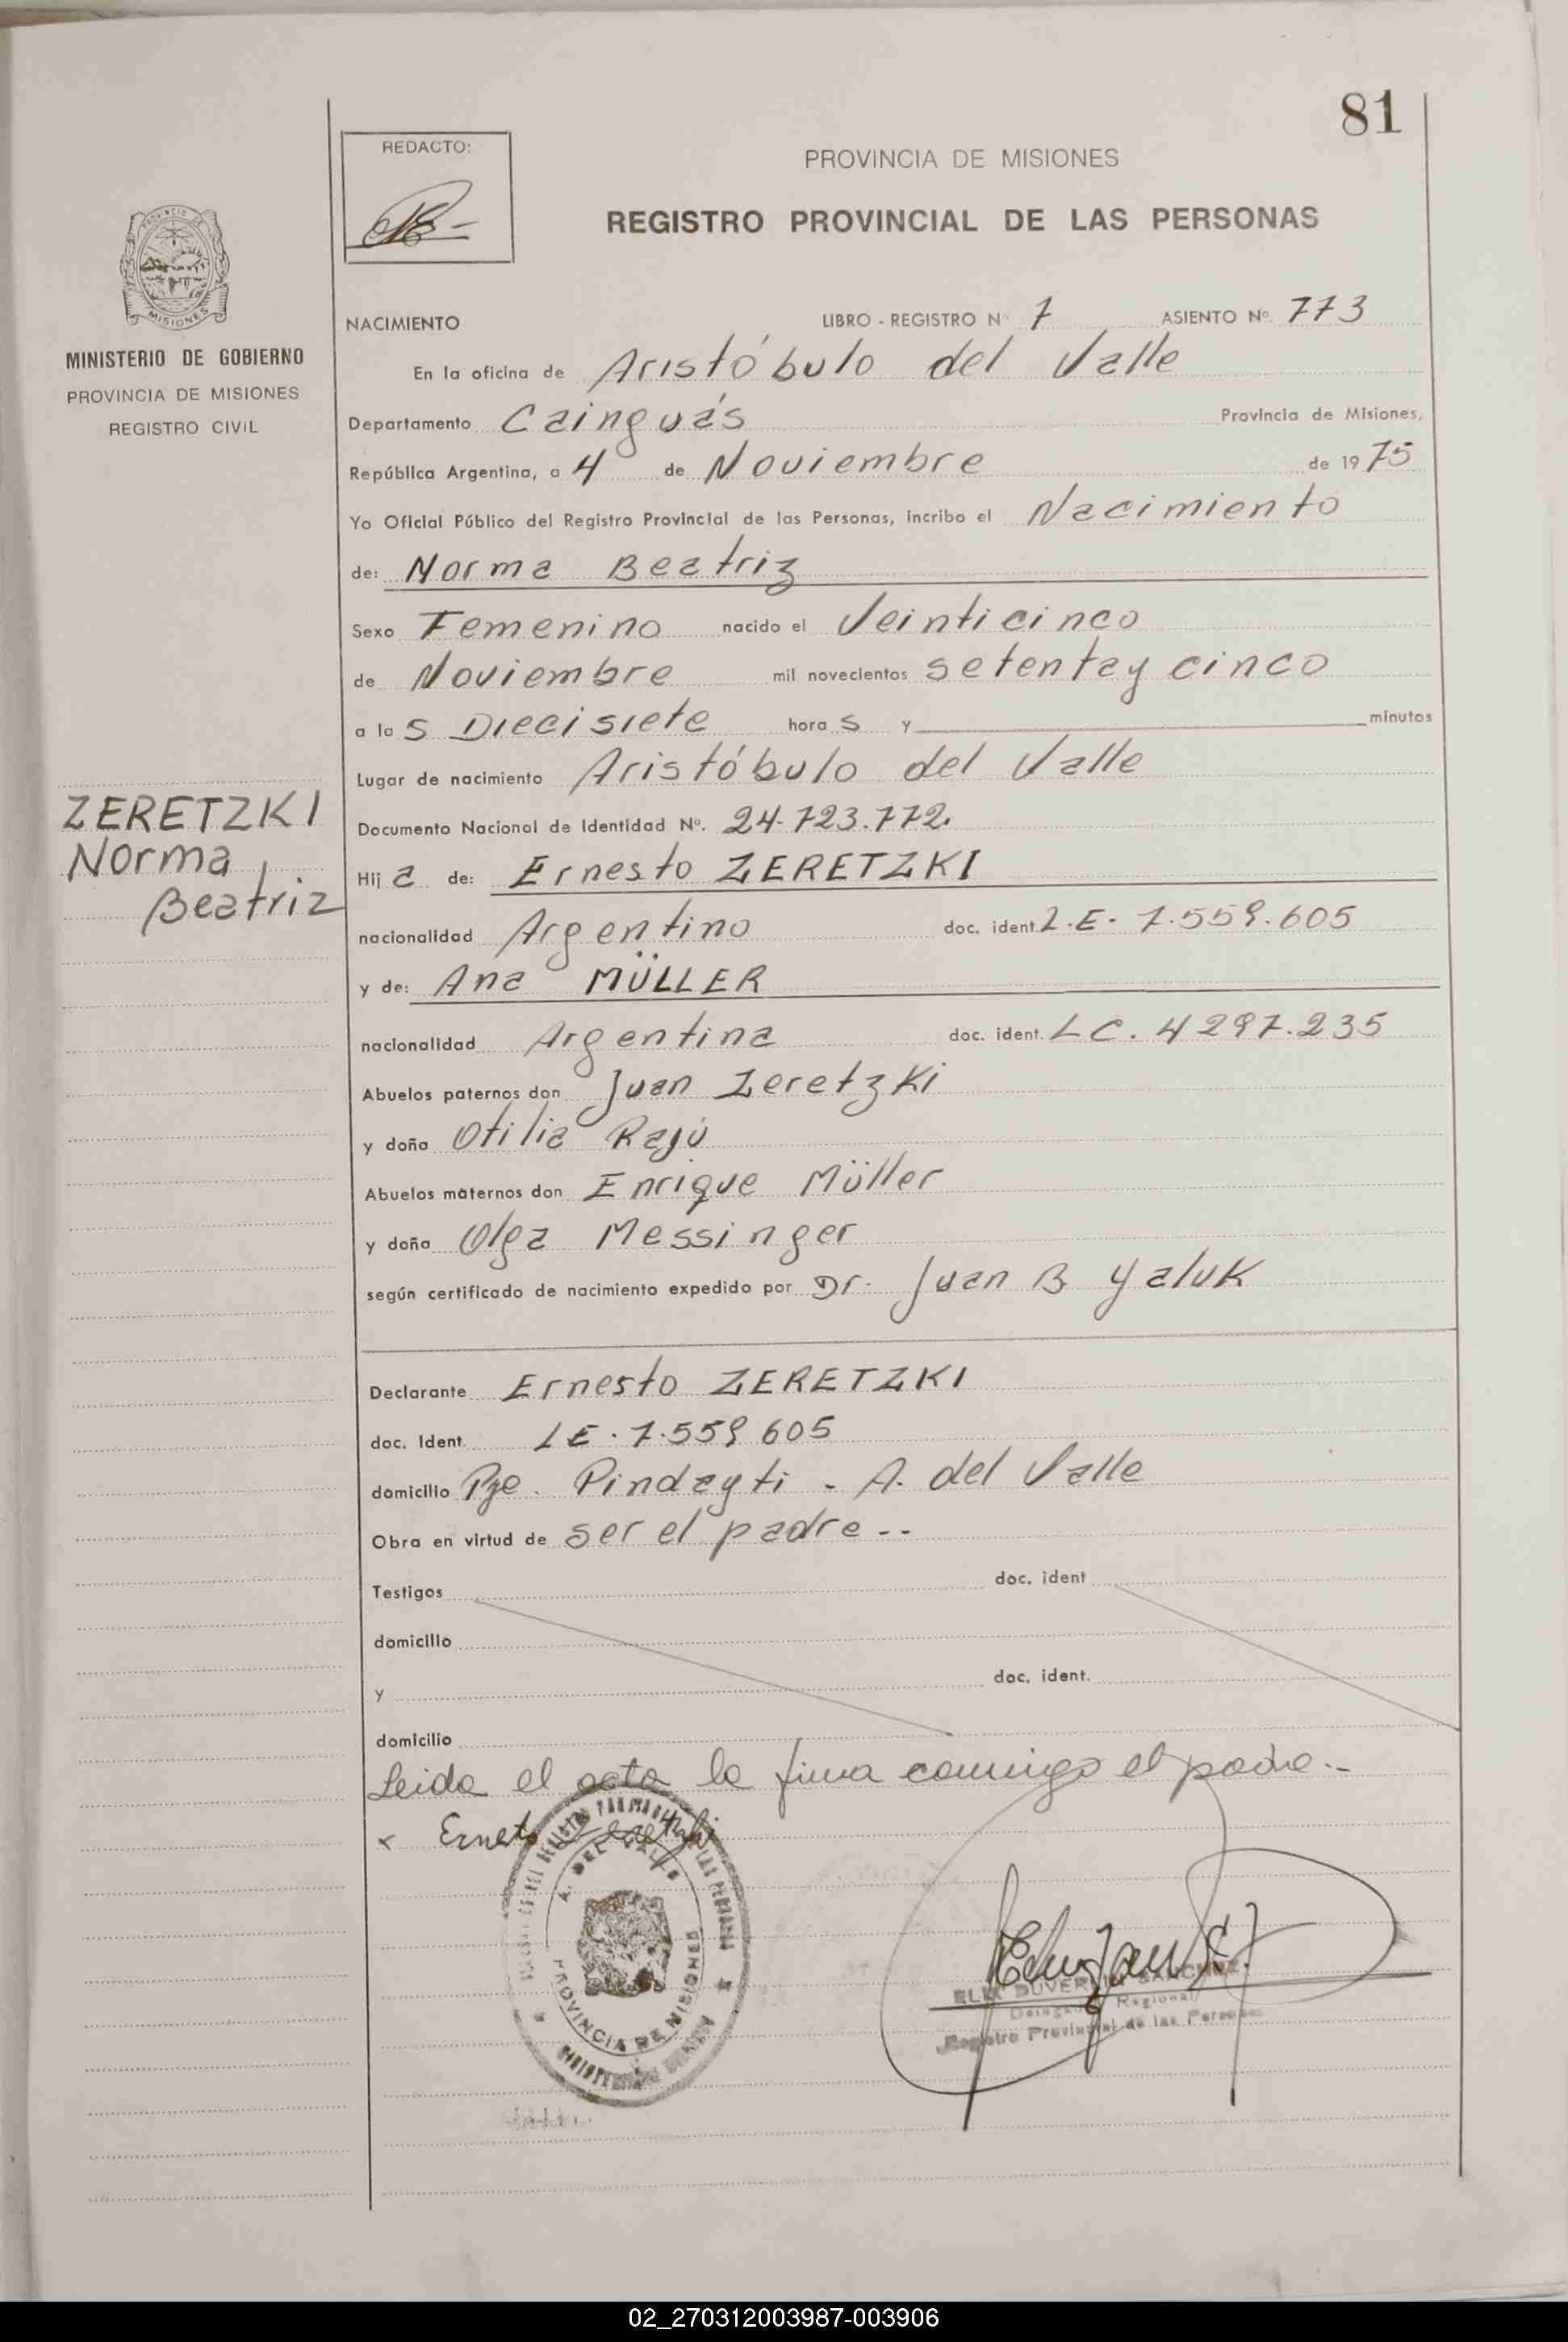 81
REDACTO:
PROVINCIA DE MISIONES
REGISTRO PROVINCIAL DE LAS PERSONAS
PROVINCIA DE
MISIONES
MINISTERIO DE GOBIERNO
PROVINCIA DE MISIONES
REGISTRO CIVIL
NACIMIENTO LIBRO - REGISTRO Nº 7 ASIENTO Nº 773
En la oficina de Aristóbulo del Valle
Departamento Cainguás Provincia de Misiones,
República Argentina, a 4 de Noviembre de 1975
Yo Oficial Público del Registro Provincial de las Personas, incribo el Nacimiento
de: Norma Beatriz
Sexo Femenino nacido el Veinticinco
de Noviembre mil novecientos setentay cinco
a las Diecisiete horas y minutos
Lugar de nacimiento Aristóbulo del Valle
ZERETZKI
Norma
Beatriz
Documento Nacional de Identidad Nº. 24.723.772.
Hija de: Ernesto ZERETZKI
nacionalidad Argentino doc. ident. L.E. 7.559.605
y de: Ana MÜLLER
nacionalidad Argentina doc. ident. LC. 4297.235
Abuelos paternos don Juan Zeretzki
y doña Otilia Rajú
Abuelos maternos don Enrique Müller
y doña Olga Messinger
según certificado de nacimiento expedido por Dr. Juan B Yaluk
Declarante Ernesto ZERETZKI
doc. Ident. LE. 7.559 605
domicilio Pje. Pindayti - A. del Valle
Obra en virtud de ser el padre--
Testigos doc. ident
domicilio
y doc. ident.
domicilio
Leida el acta la firma conmigo el padre.-
Erneto Zeretzki
A. DEL VALLE
PROVINCIA DE MISIONES
SANCHEZ
Delegado Regional
Registro Provincial de las Personas
02_270312003987-003906